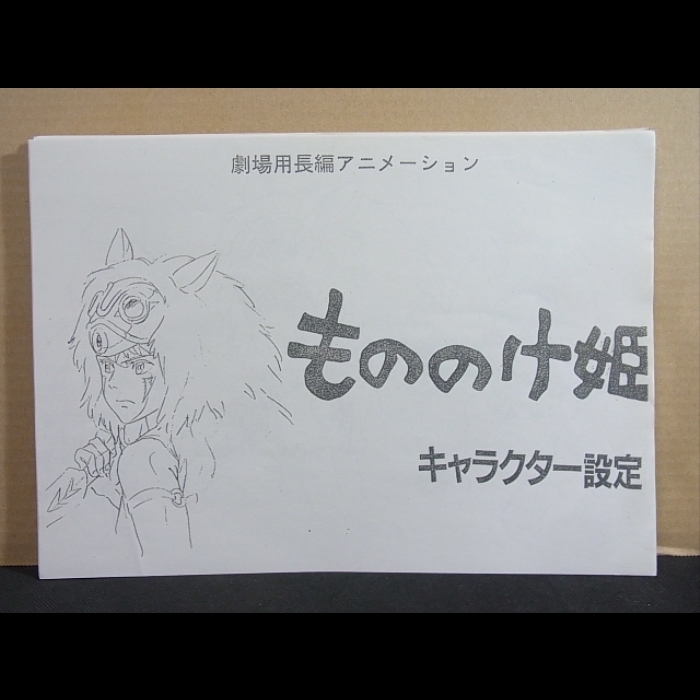 劇場用長編アニメーション
もののけ姫
キャラクター設定